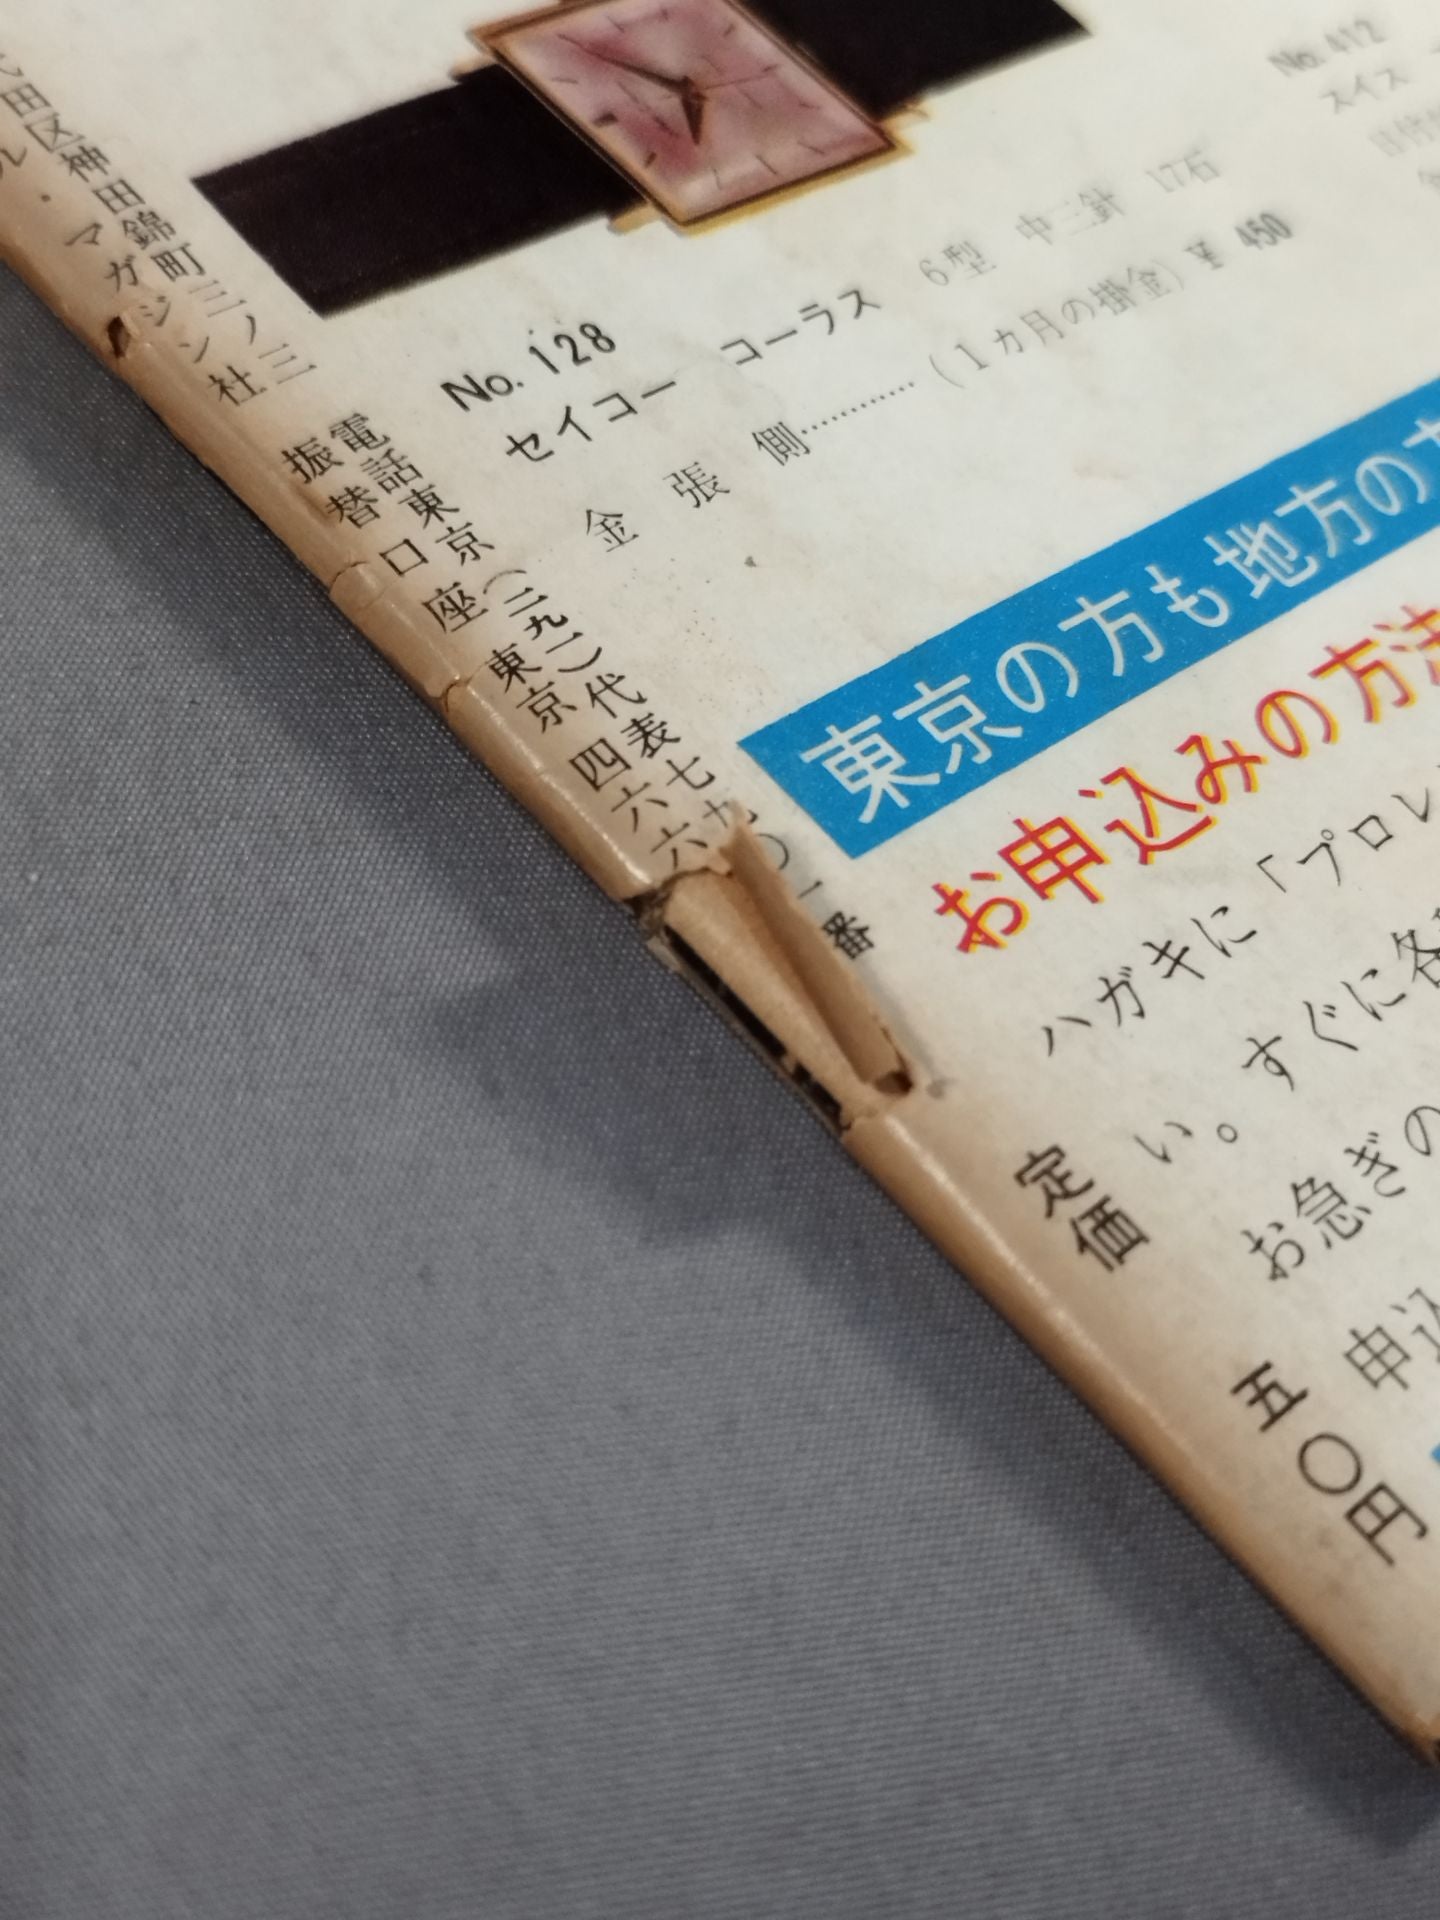 No. 128
セイコー コーラス 6型 中三針 17石
金張側…………(1カ月の掛金)¥ 450
No. 412
スイス
東京の方も地方の方
お申込みの方法
ハガキに「プロレ
い。すぐに各
お急ぎの
申込
代田区神田錦町三ノ三
ル・マガジン社
電話東京(二九一)代表七九〇一番
振替口座 東京 四六六
定価 五〇円